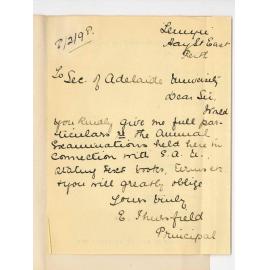 8/2/98.
Hay St East
Perth
To Sec. of Adelaide University
Dear Sir,
Would
you kindly give me full par-
ticulars re the Annual
Examinations held here in
connection with S. A. U.
stating text books, terms &c
& you will greatly oblige
Yours truly
E. Thursfield
Principal